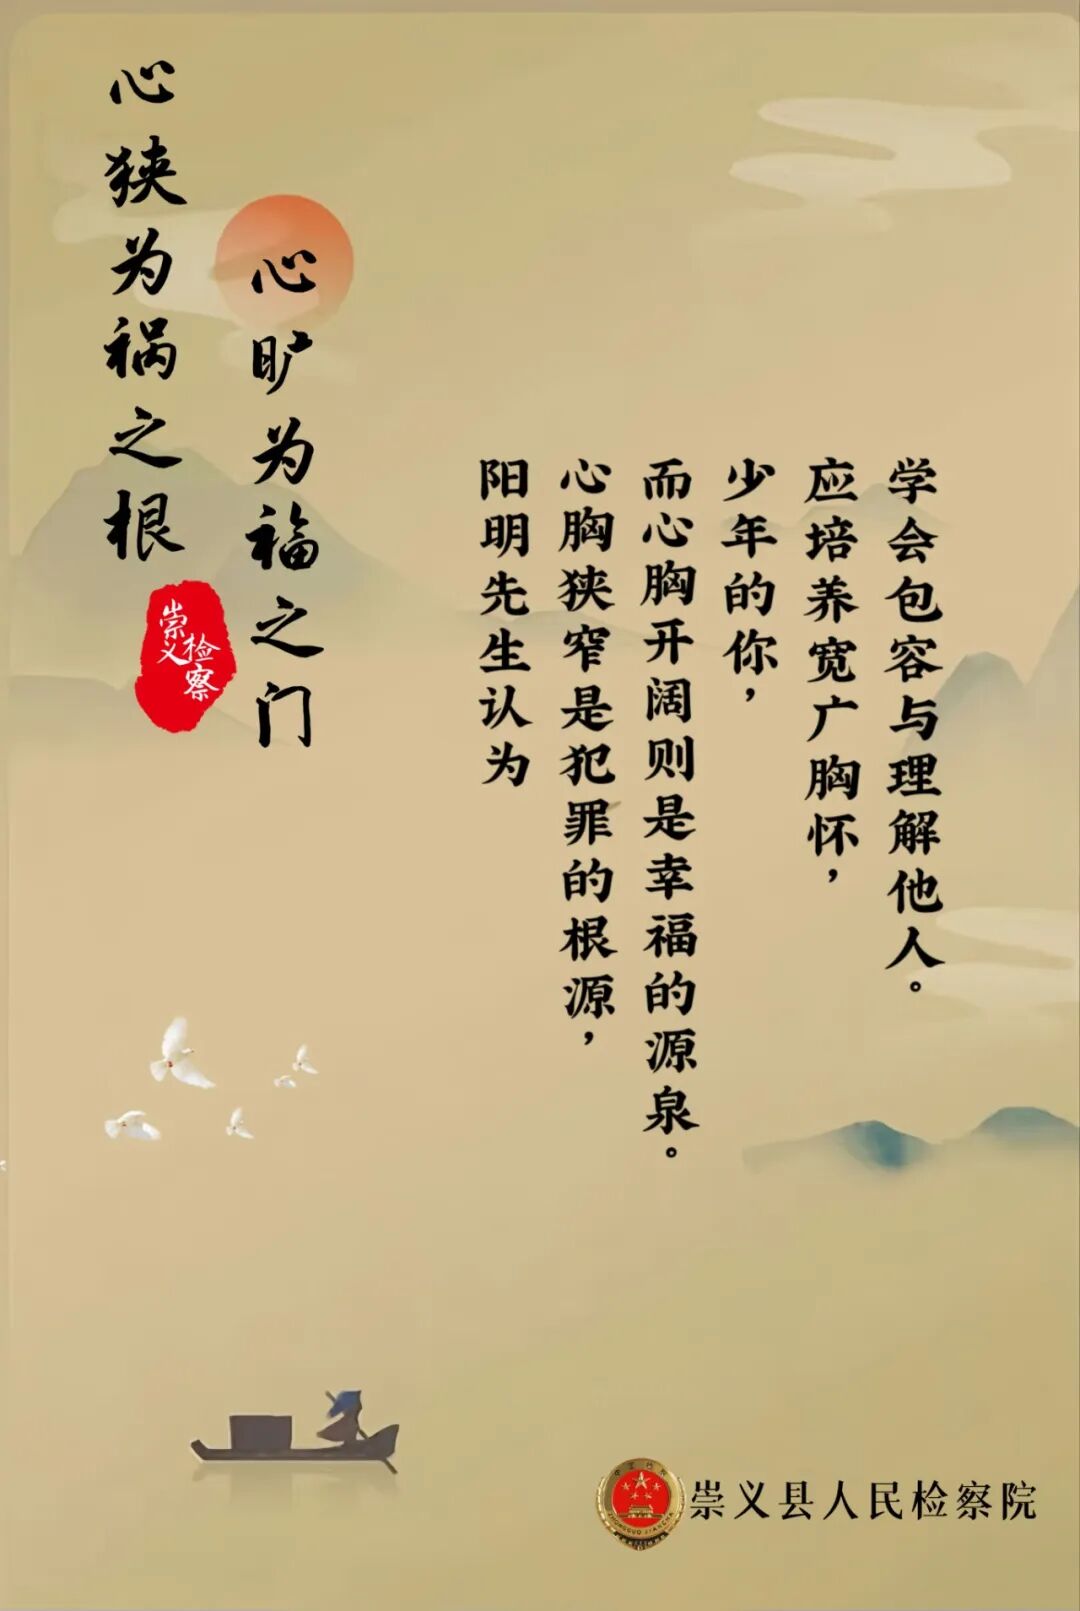 心狭为祸之根
心旷为福之门
崇义
检察
阳明先生认为
心胸狭窄是犯罪的根源，
而心胸开阔则是幸福的源泉。
少年的你，
应培养宽广胸怀，
学会包容与理解他人。
崇义县人民检察院